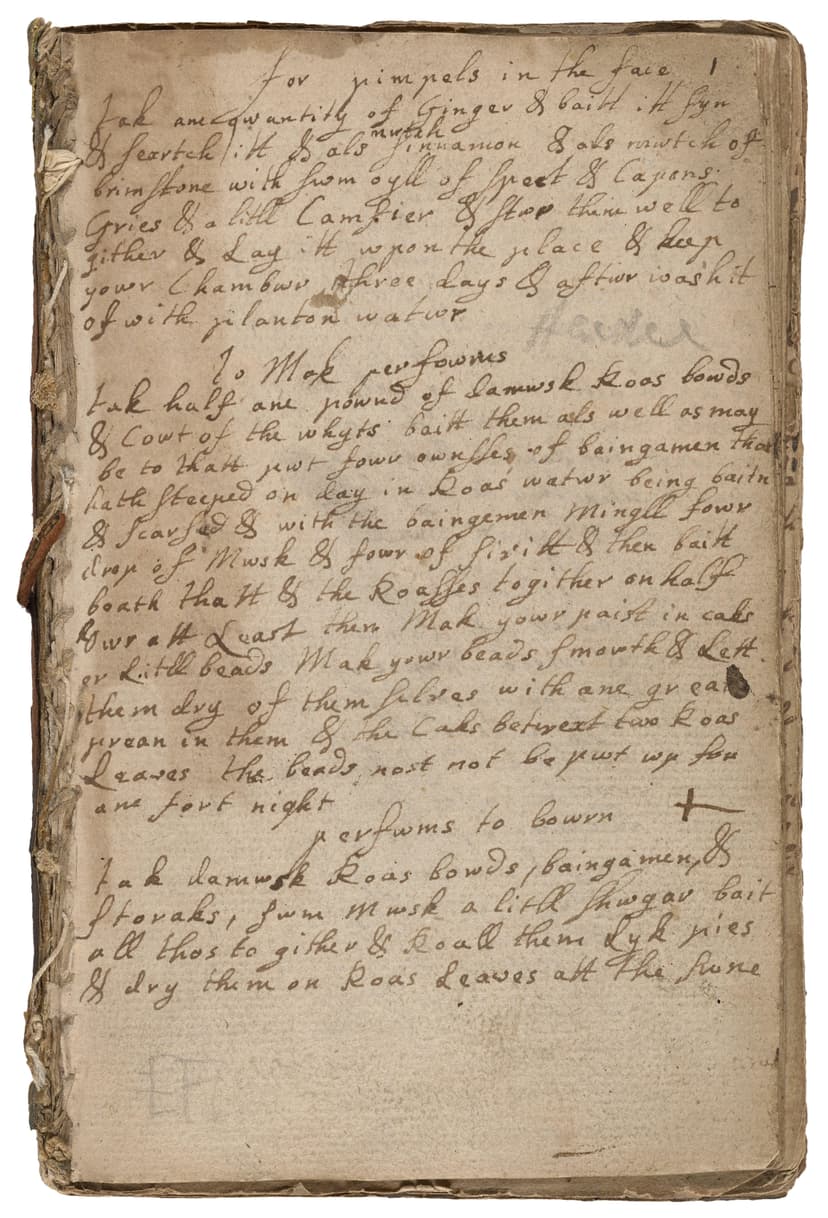 for pimpels in the face 1
tak ane qwantity of Ginger & baitt itt fyn
& seartch itt & als mwtch sinnamon & als mwtch of
brimstone with swm oyll of & Capons
Gries & a litll Camfier & them well to
gither & Lay itt wpon the place & keep
yowr Chambwr three days & aftwr wash it
of with planton watwr
To Mak perfowms
tak half ane pownd of damwsk Roas bowds
& Cowt of the whyts baitt them als well as may
be to thatt pwt fowr ownsses of baingamen that
hath steeped on day in Roas watwr being baitn
& scarsed & with the baingemen Mingll fowr
drop of Mwsk & fowr of sivitt & then baitt
boath thatt & the Roasses togither on half
howr att Least then Mak yowr paist in caks
or Litll beads Mak yowr beads smowth & Lett
them dry of them selves with ane great
prean in them & the Caks betwext two Roas
Leaves the beads most not be pwt wp for
ane fort night
perfwms to bowrn +
tak damwsk Roas bowds, baingamen, &
storaks, swm Mwsk a litll shwgar bait
all thos to gither & Roall them Lyk pies
& dry them on Roas Leaves att the swne
EF